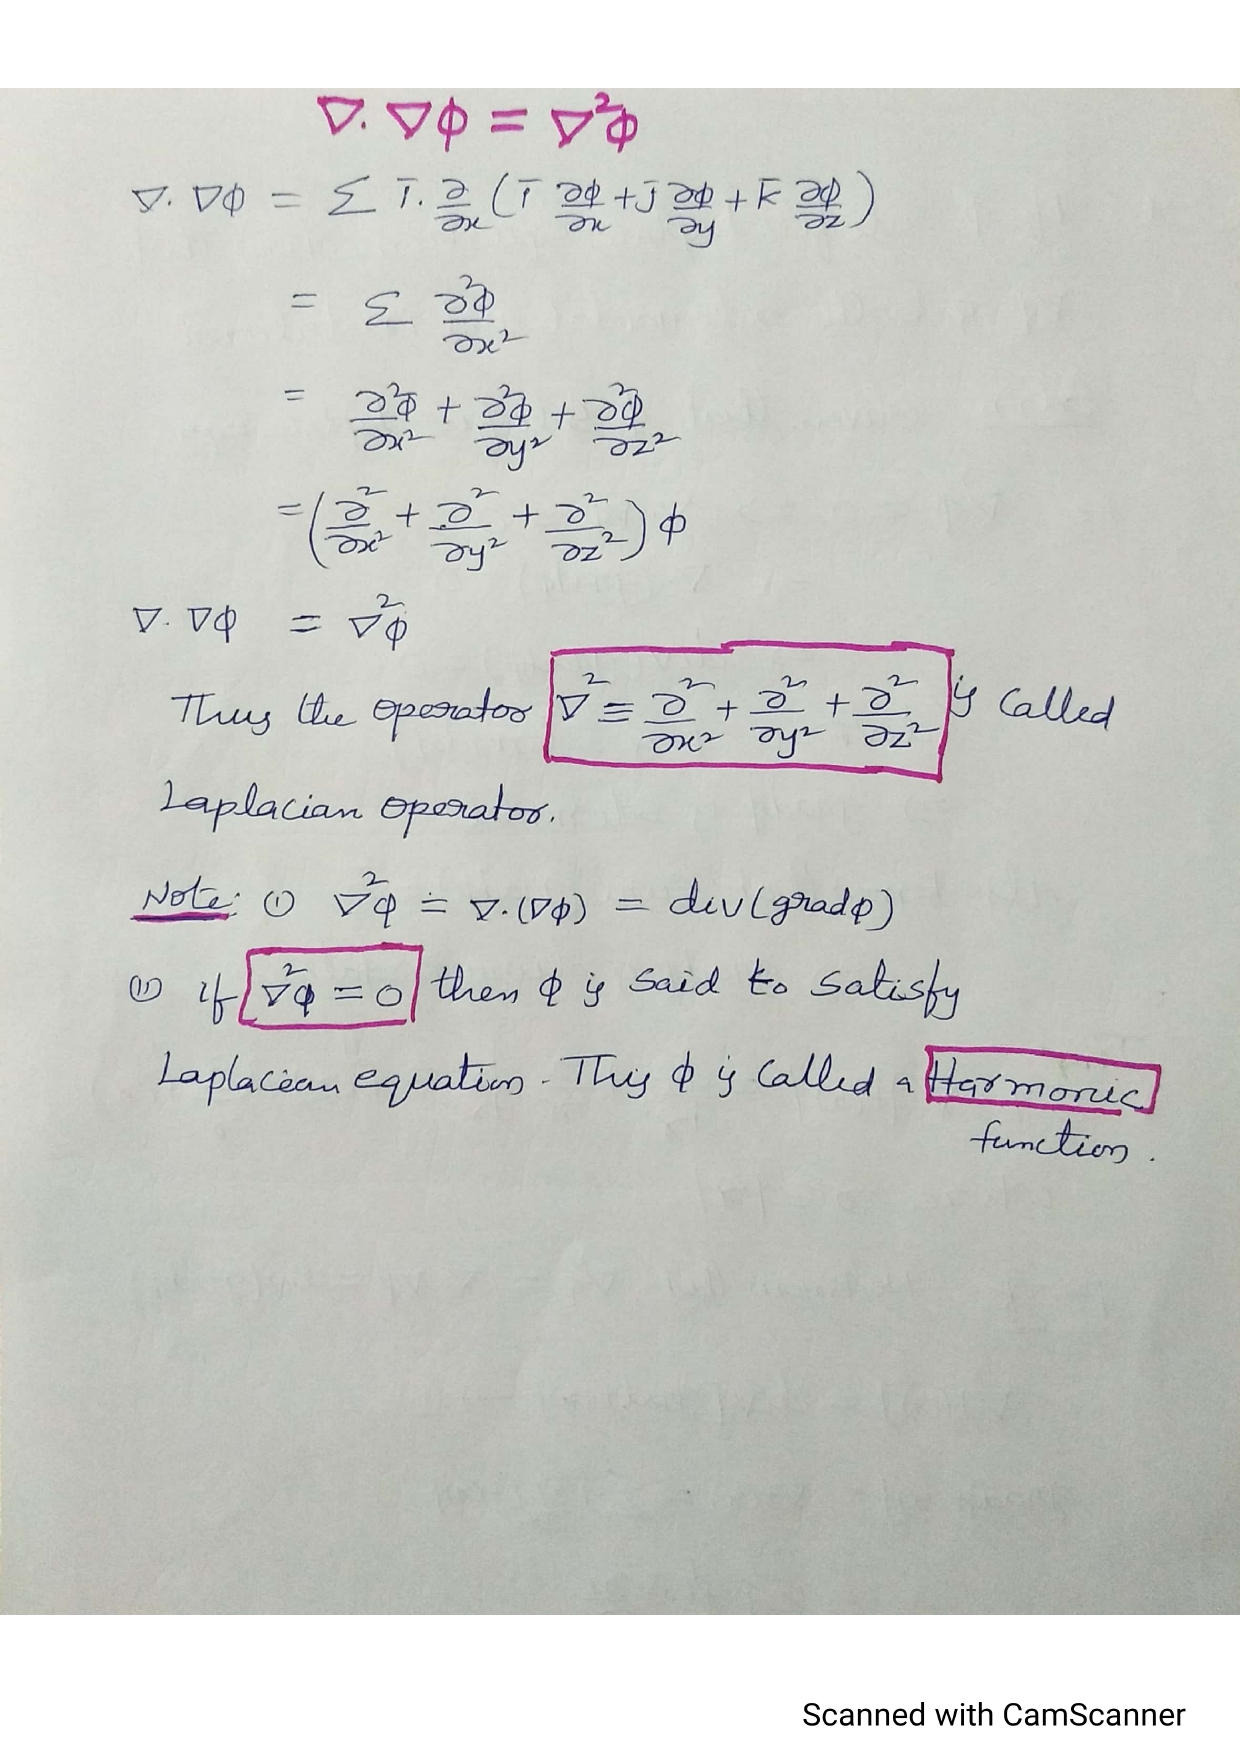 ∇. ∇ϕ = ∇²ϕ
∇. ∇ϕ = Σ i̅. ∂/∂x (i̅ ∂ϕ/∂x + j̅ ∂ϕ/∂y + k̅ ∂ϕ/∂z)
= Σ ∂²ϕ/∂x²
= ∂²ϕ/∂x² + ∂²ϕ/∂y² + ∂²ϕ/∂z²
= (∂²/∂x² + ∂²/∂y² + ∂²/∂z²) ϕ
∇. ∇ϕ = ∇²ϕ
Thus the operator ∇² ≡ ∂²/∂x² + ∂²/∂y² + ∂²/∂z² is called
Laplacian operator.
Note: (i) ∇²ϕ = ∇.(∇ϕ) = div(grad ϕ)
(ii) if ∇²ϕ = 0 then ϕ is said to satisfy
Laplacian equation. This ϕ is called a Harmonic
function.
Scanned with CamScanner